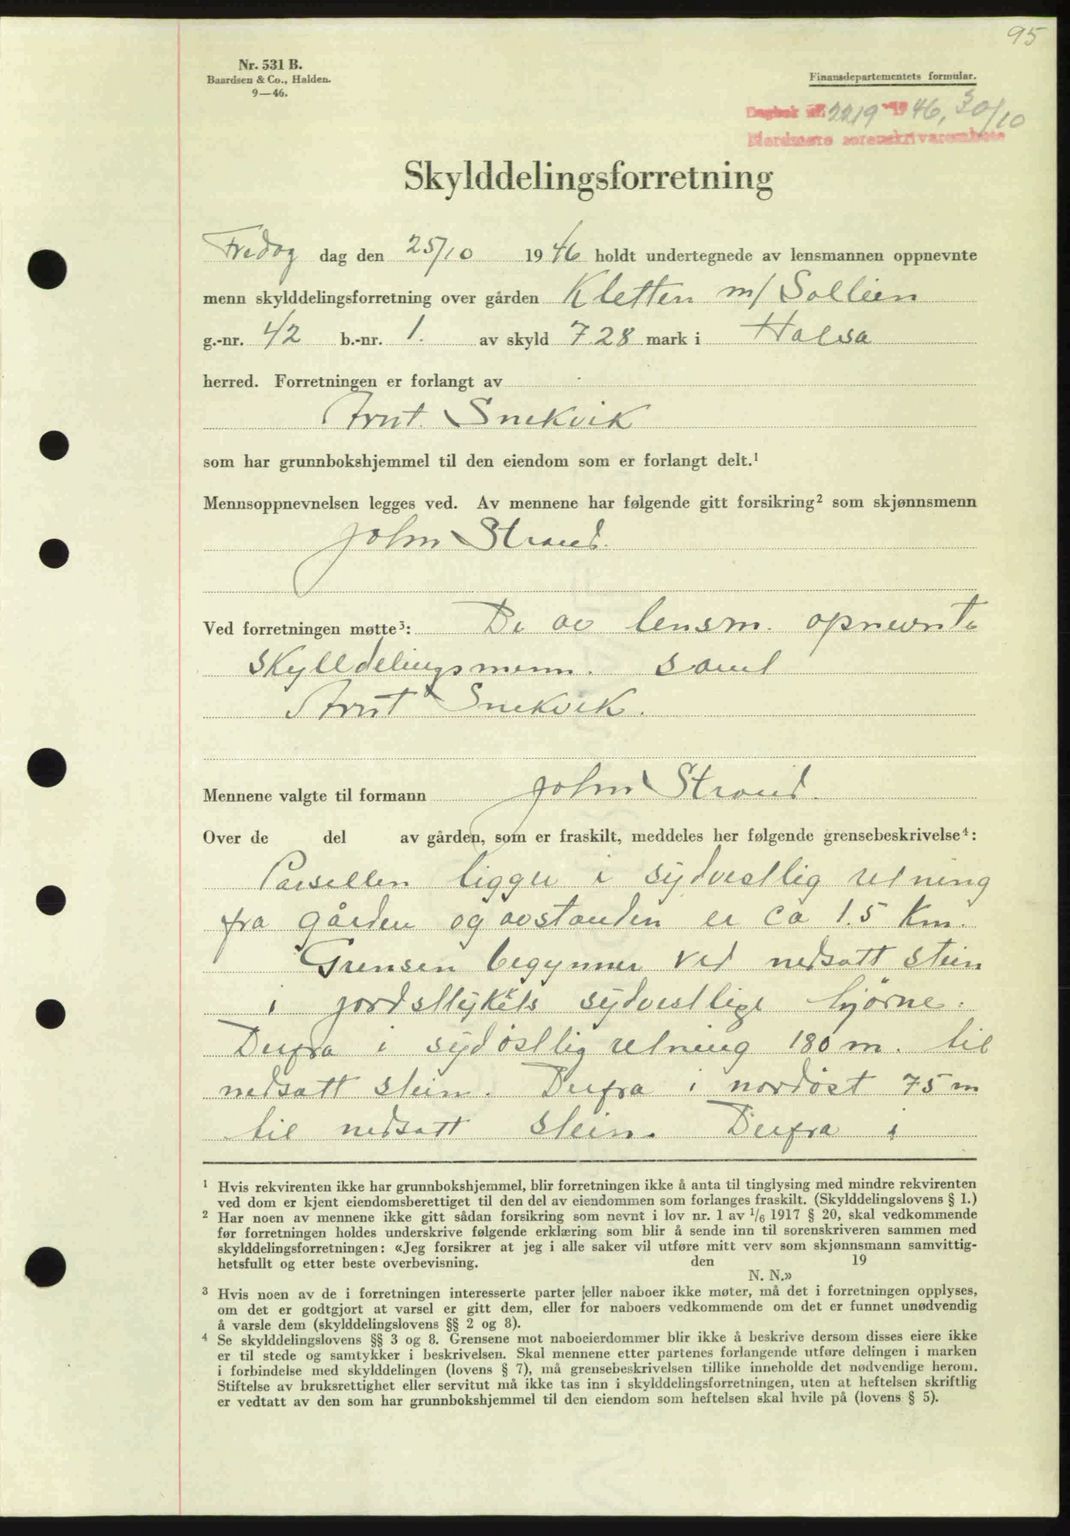 95
Nr. 531 B.
Baardsen & Co., Halden.
9—46.
Finansdepartementets formular.
Dagbok nr. 2219 19 46, 30/10
Nordmøre sorenskriverembete
Skylddelingsforretning
Fredag dag den 25/10 19 46 holdt undertegnede av lensmannen oppnevnte
menn skylddelingsforretning over gården Kletten m/ Sollien
g.-nr. 42 b.-nr. 1. av skyld 7.28 mark i Halsa
herred. Forretningen er forlangt av
Arnt. Snekvik
som har grunnbokshjemmel til den eiendom som er forlangt delt.¹
Mennsoppnevnelsen legges ved. Av mennene har følgende gitt forsikring² som skjønnsmenn
John Strand.
Ved forretningen møtte³: De av lensm. opnevnte
skylldelingsmenn. samt
Arnt Snekvik.
Mennene valgte til formann John Strand.
Over de del av gården, som er fraskilt, meddeles her følgende grensebeskrivelse⁴:
Parsellen ligger i sydvestlig retning
fra gården og avstanden er ca 1.5 Km.
Grensen begynner ved nedsatt stein
i jordstykkets sydvestlige hjørne.
Derfra i sydøstlig retning 180 m. til
nedsatt stein. Derfra i nordøst 75 m
til nedsatt stein. Derfra i
¹ Hvis rekvirenten ikke har grunnbokshjemmel, blir forretningen ikke å anta til tinglysing med mindre rekvirenten
ved dom er kjent eiendomsberettiget til den del av eiendommen som forlanges fraskilt. (Skylddelingslovens § 1.)
² Har noen av mennene ikke gitt sådan forsikring som nevnt i lov nr. 1 av 1/6 1917 § 20, skal vedkommende
før forretningen holdes underskrive følgende erklæring som blir å sende inn til sorenskriveren sammen med
skylddelingsforretningen: «Jeg forsikrer at jeg i alle saker vil utføre mitt verv som skjønnsmann samvittig-
hetsfullt og etter beste overbevisning. den 19
N. N.»
³ Hvis noen av de i forretningen interesserte parter eller naboer ikke møter, må det i forretningen opplyses,
om det er godtgjort at varsel er gitt dem, eller for naboers vedkommende om det er funnet unødvendig
å varsle dem (skylddelingslovens §§ 2 og 8).
⁴ Se skylddelingslovens §§ 3 og 8. Grensene mot naboeierdommer blir ikke å beskrive dersom disses eiere ikke
er til stede og samtykker i beskrivelsen. Skal mennene etter partenes forlangende utføre delingen i marken
i forbindelse med skylddelingen (lovens § 7), må grensebeskrivelsen tillike inneholde det nødvendige herom.
Stiftelse av bruksrettighet eller servitut må ikke tas inn i skylddelingsforretningen, uten at heftelsen skriftlig
er vedtatt av den som har grunnbokshjemmel til den eiendom som heftelsen skal hvile på (lovens § 5).